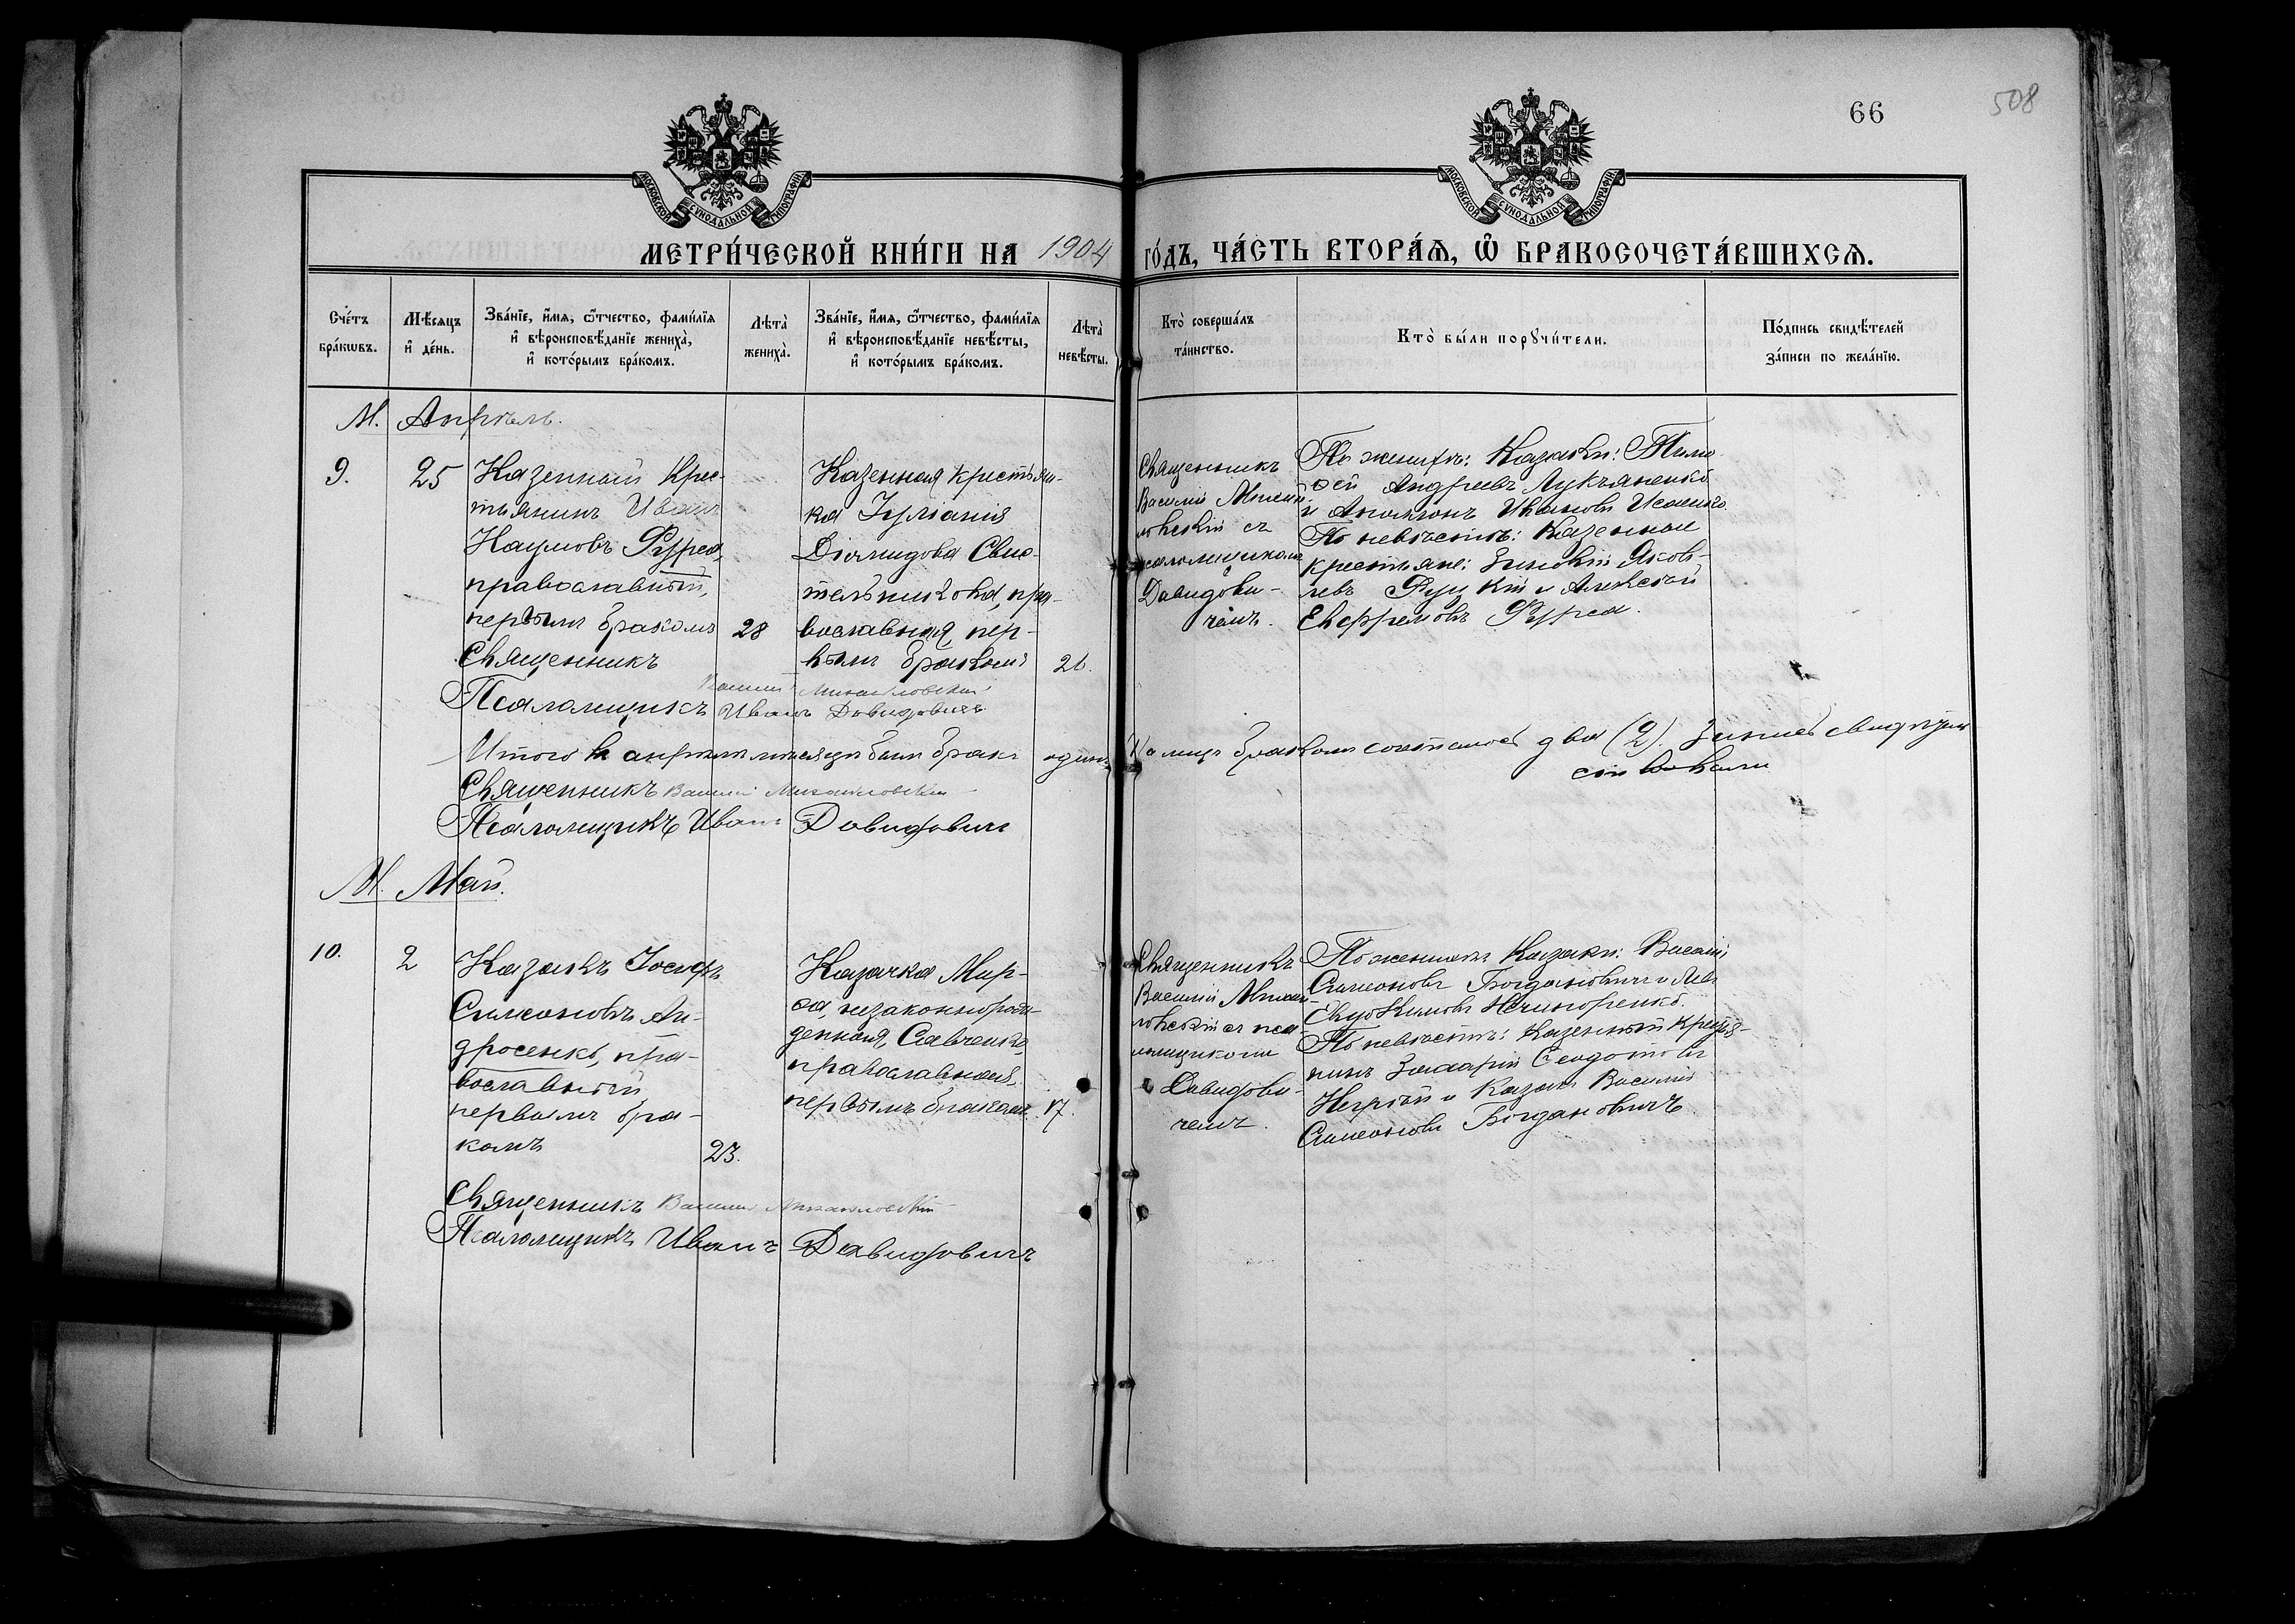 66
508
МОСКОВСКОЙ СѴНОДАЛЬНОЙ ТИПОГРАФІИ
МОСКОВСКОЙ СѴНОДАЛЬНОЙ ТИПОГРАФІИ
МЕТРИ́ЧЕСКОЙ КНИ́ГИ НА 1904 ГО́ДЪ, ЧА́СТЬ ВТОРА́Ѧ, Ѽ БРАКОСОЧЕТА́ВШИХСѦ.
Сче́тъ
бра́кѡвъ.
Мѣ́сѧцъ
и҆ де́нь.
Зва́нїе, и҆́мѧ, ѻ҆́тчество, фами́лїѧ
и҆ вѣроисповѣ́данїе жениха̀,
и҆ кото́рымъ бра́комъ.
Лѣта̀
жениха̀.
Зва́нїе, и҆́мѧ, ѻ҆́тчество, фами́лїѧ
и҆ вѣроисповѣ́данїе невѣ́сты,
и҆ кото́рымъ бра́комъ.
Лѣта̀
невѣ́сты.
Кто̀ соверша́лъ
та́инство.
Кто̀ бы́ли порꙋчи́тели.
По́дпись свидѣ́телей
за́писи по жела́нїю.
М. Апрѣль.
9.
25
Казенный Крес-
тьянинъ Иванъ
Наумовъ Фурса,
православный,
первымъ бракомъ
28
Казенная крестьян-
ка Іуліанія
Діомидова Сви-
тельникова, пра-
вославная, пер-
вымъ бракомъ
Священникъ
Василій Михаи-
ловскій съ
псаломщикомъ
Давидови-
чемъ.
По женихѣ: Казаки: Тимо-
ѳей Андреевъ Лукьяненко
и Ивановъ
По невѣстѣ: Казенные
крестьяне: Зиновій Яков-
левъ и Алексѣй
Евфремовъ Фурса.
Священникъ Василій Михаиловскій
Псаломщикъ Иванъ Давидовичъ
Итого въ апрѣлѣ мѣсяцѣ былъ бракъ одинъ
а лицъ бракомъ сочталось два (2).
Священникъ Василій Михаиловскій
Псаломщикъ Иванъ Давидовичъ
М. Май.
10.
2
Казакъ Іосифъ
Симеоновъ Ан-
дросенко, пра-
вославный,
первымъ бра-
комъ
23.
Казачка Мар-
ѳа, незаконнорож-
денная, Савченко,
православная,
первымъ бракомъ.
17.
Священникъ
Василій Михаи-
ловскій съ пса-
ломщикомъ
Давидови-
чемъ.
По женихѣ Казаки: Василій
Симеоновъ Богдановичъ и
Евдокимовъ Нечипоренко.
По невѣстѣ: Казенный Крестья-
нинъ Захарій Ѳеодотовъ
и Казакъ Василій
Симеоновъ Богдановичъ
Священникъ Василій Михаиловскій
Псаломщикъ Иванъ Давидовичъ